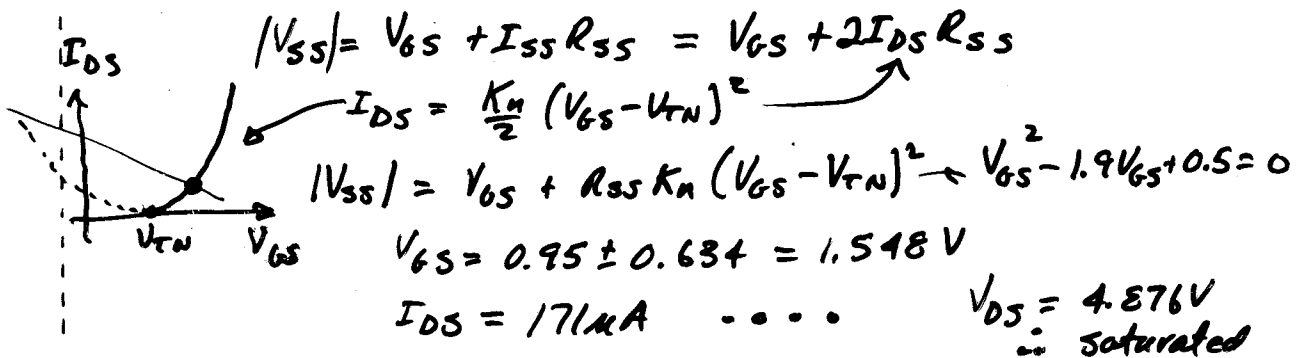 |V_SS| = V_GS + I_SS R_SS = V_GS + 2I_DS R_SS
I_DS
I_DS = K_n/2 (V_GS - V_TN)^2
|V_SS| = V_GS + R_SS K_n (V_GS - V_TN)^2 ← V_GS^2 - 1.9V_GS + 0.5 = 0
V_TN V_GS
V_GS = 0.95 ± 0.634 = 1.548 V
I_DS = 171μA ....
V_DS = 4.876V
∴ saturated